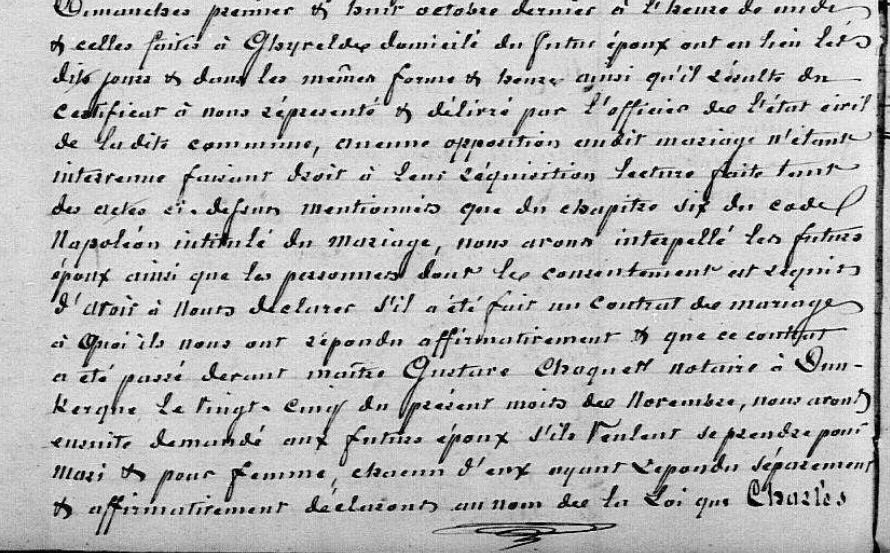 Dimanches premier & huit octobre dernier à l'heure de midi
& celles faites à Ghyvelde domicile du futur époux ont en lieu lès
dits jours & dans les mêmes forme & heure ainsi qu'il résulte du
certificat à nous réprésenté & délivré par l'officier de l'état civil
de ladite commune, aucune opposition audit mariage n'étant
intervenue faisant droit à leur réquisition lecture faite tant
des actes ci-dessus mentionnés que du chapitre six du code
Napoléon intitulé du mariage, nous avons interpellé les futurs
époux ainsi que les personnes dont le consentement est requis
d'avoir à Nous déclarer s'il a été fait un contrat de mariage
à Quoi ils nous ont répondu affirmativement & que ce contrat
a été passé devant maître Gustave Choquet notaire à Dun-
Kerque le Vingt-cinq du présent mois de Novembre, nous avons
ensuite demandé aux futurs époux s'ils Veulent se prendre pour
Mari & pour femme, chacun d'eux ayant répondu séparement
& affirmativement déclarons au nom de la Loi que Charles